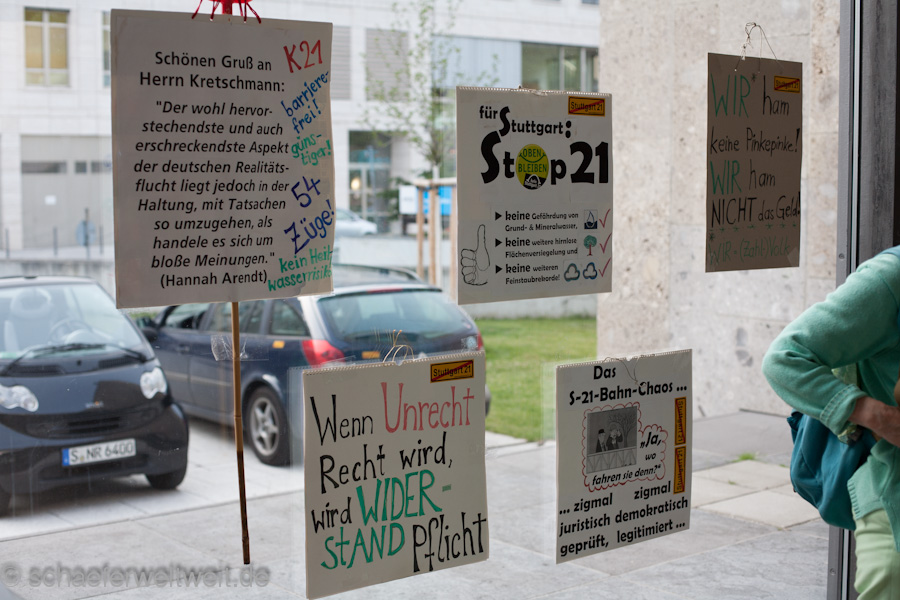 Schönen Gruß an
Herrn Kretschmann:
"Der wohl hervor-
stechendste und auch
erschreckendste Aspekt
der deutschen Realitäts-
flucht liegt jedoch in der
Haltung, mit Tatsachen
so umzugehen, als
handele es sich um
bloße Meinungen."
(Hannah Arendt)
K21
barriere-
frei!
güns-
tiger!
54
Züge!
kein Heil-
wasserrisiko
Stuttgart 21
für Stuttgart:
Stop 21
OBEN
BLEIBEN
keine Gefährdung von
Grund- & Mineralwasser,
keine weitere hirnlose
Flächenversiegelung und
keine weiteren
Feinstaubrekorde!
Stuttgart 21
WIR ham
keine Pinkepinke!
WIR ham
NICHT das Geld.
Stuttgart 21
Wenn Unrecht
Recht wird,
wird WIDER-
STAND Pflicht
Das
S-21-Bahn-Chaos ...
"Ja,
wo
fahren sie denn?"
... zigmal zigmal
juristisch demokratisch
geprüft, legitimiert ...
S NR 6400
© schaeferweltweit.de